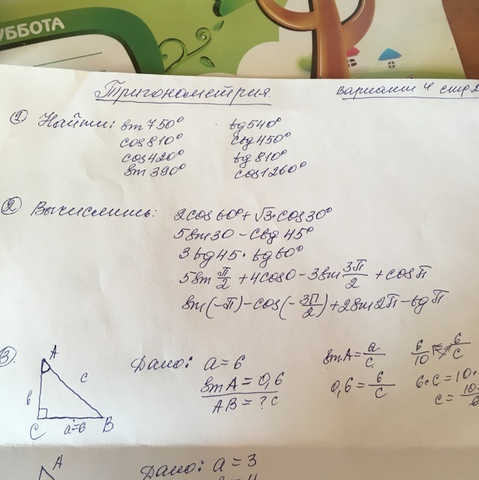 УББОТА
Тригонометрия
вариант 4
① Найти: sin 750° tg 540°
cos 810° ctg 450°
cos 420° tg 810°
sin 390° cos 1260°
② Вычислить: 2cos 60° + √3·cos 30°
5sin 30 - ctg 45°
3 tg 45 · tg 60°
5sin π/2 + 4cos 0 - 3sin 3π/2 + cos π
sin(-π) - cos(-3π/2) + 2sin 2π - tg π
3. Дано: a = 6 sin A = a/c 6/10 = 6/c
sin A = 0,6 0,6 = 6/c 6·c = 10·
AB = ? c c = 10
A
в c
C a=6 B
A
Дано: a = 3